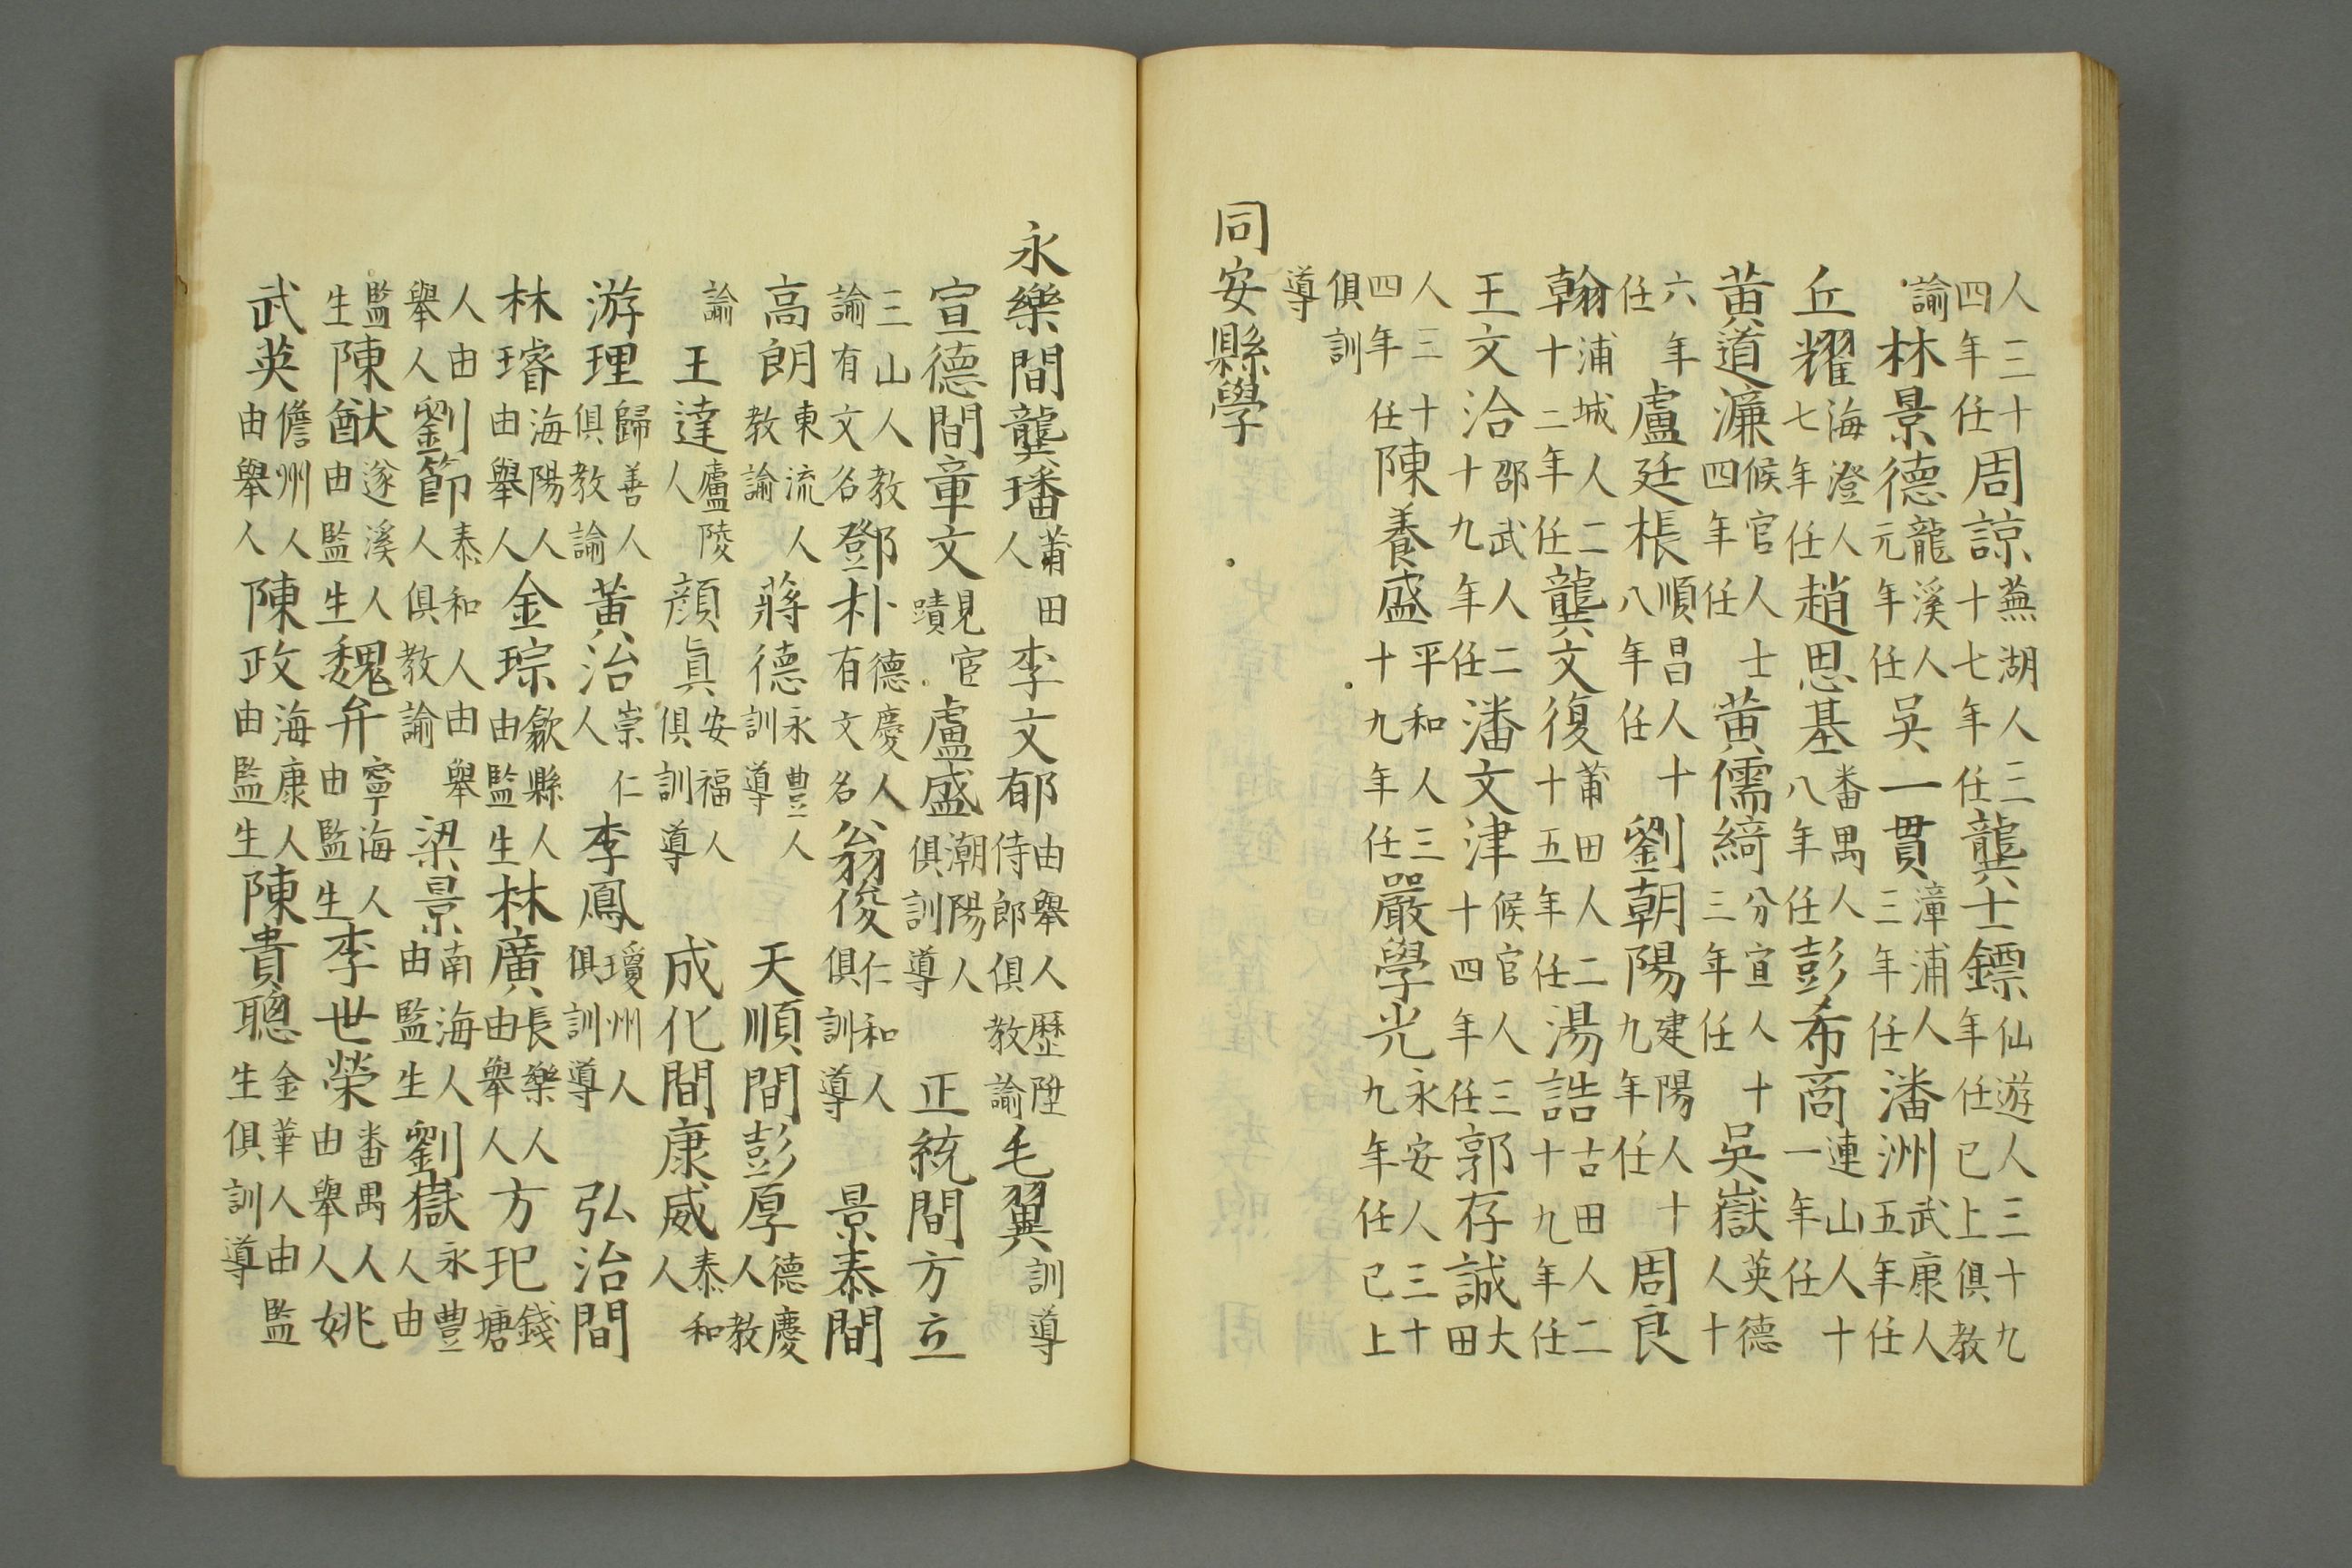 人三十四年任周諒蕪湖人三十七年任龔士鏢仙遊人三十九年任已上俱教
諭林景德龍溪人元年任吳一貫漳浦人三年任潘洲武康人五年任
丘耀海澄人七年任趙思基番禺人八年任彭希商連山人十一年任
黄道濂候官人士四年任黄儒綺分宣人十三年任吳嶽英德人十
六年任盧廷棖順昌人十八年任劉朝陽建陽人十九年任周良
翰浦城人二十二年任龔文復莆田人二十五年任湯誥古田人二十九年任
王文洽邵武人二十九年任潘文津候官人三十四年任郭存誠大田
人三十四年任陳養盛平和人三十九年任嚴學光永安人三十九年任已上
俱訓導
同安縣學
永樂間龔璠莆田人李文郁由舉人歷陞侍郎俱教諭毛翼訓導
宣德間章文見宦蹟盧盛潮陽人俱訓導正統間方立
三山人教諭有文名鄧朴德慶人有文名翁俊仁和人俱訓導景泰間
高朗東流人教諭蔣德永豊人訓導天順間彭厚德慶人教
諭王達廬陵人顔眞安福人俱訓導成化間康威泰和人
游理歸善人俱教諭黄治崇仁人李鳳瓊州人俱訓導弘治間
林璿海陽人由舉人金琮歙縣人由監生林廣長樂人由舉人方玘錢塘
人由舉人劉節泰和人由舉人俱教諭梁景南海人由監生劉嶽永豊人由
監生陳猷遂溪人由監生魏弁寧海人由監生李世榮番禺人由舉人姚
武英儋州人由舉人陳政海康人由監生陳貴聰金華人由監生俱訓導